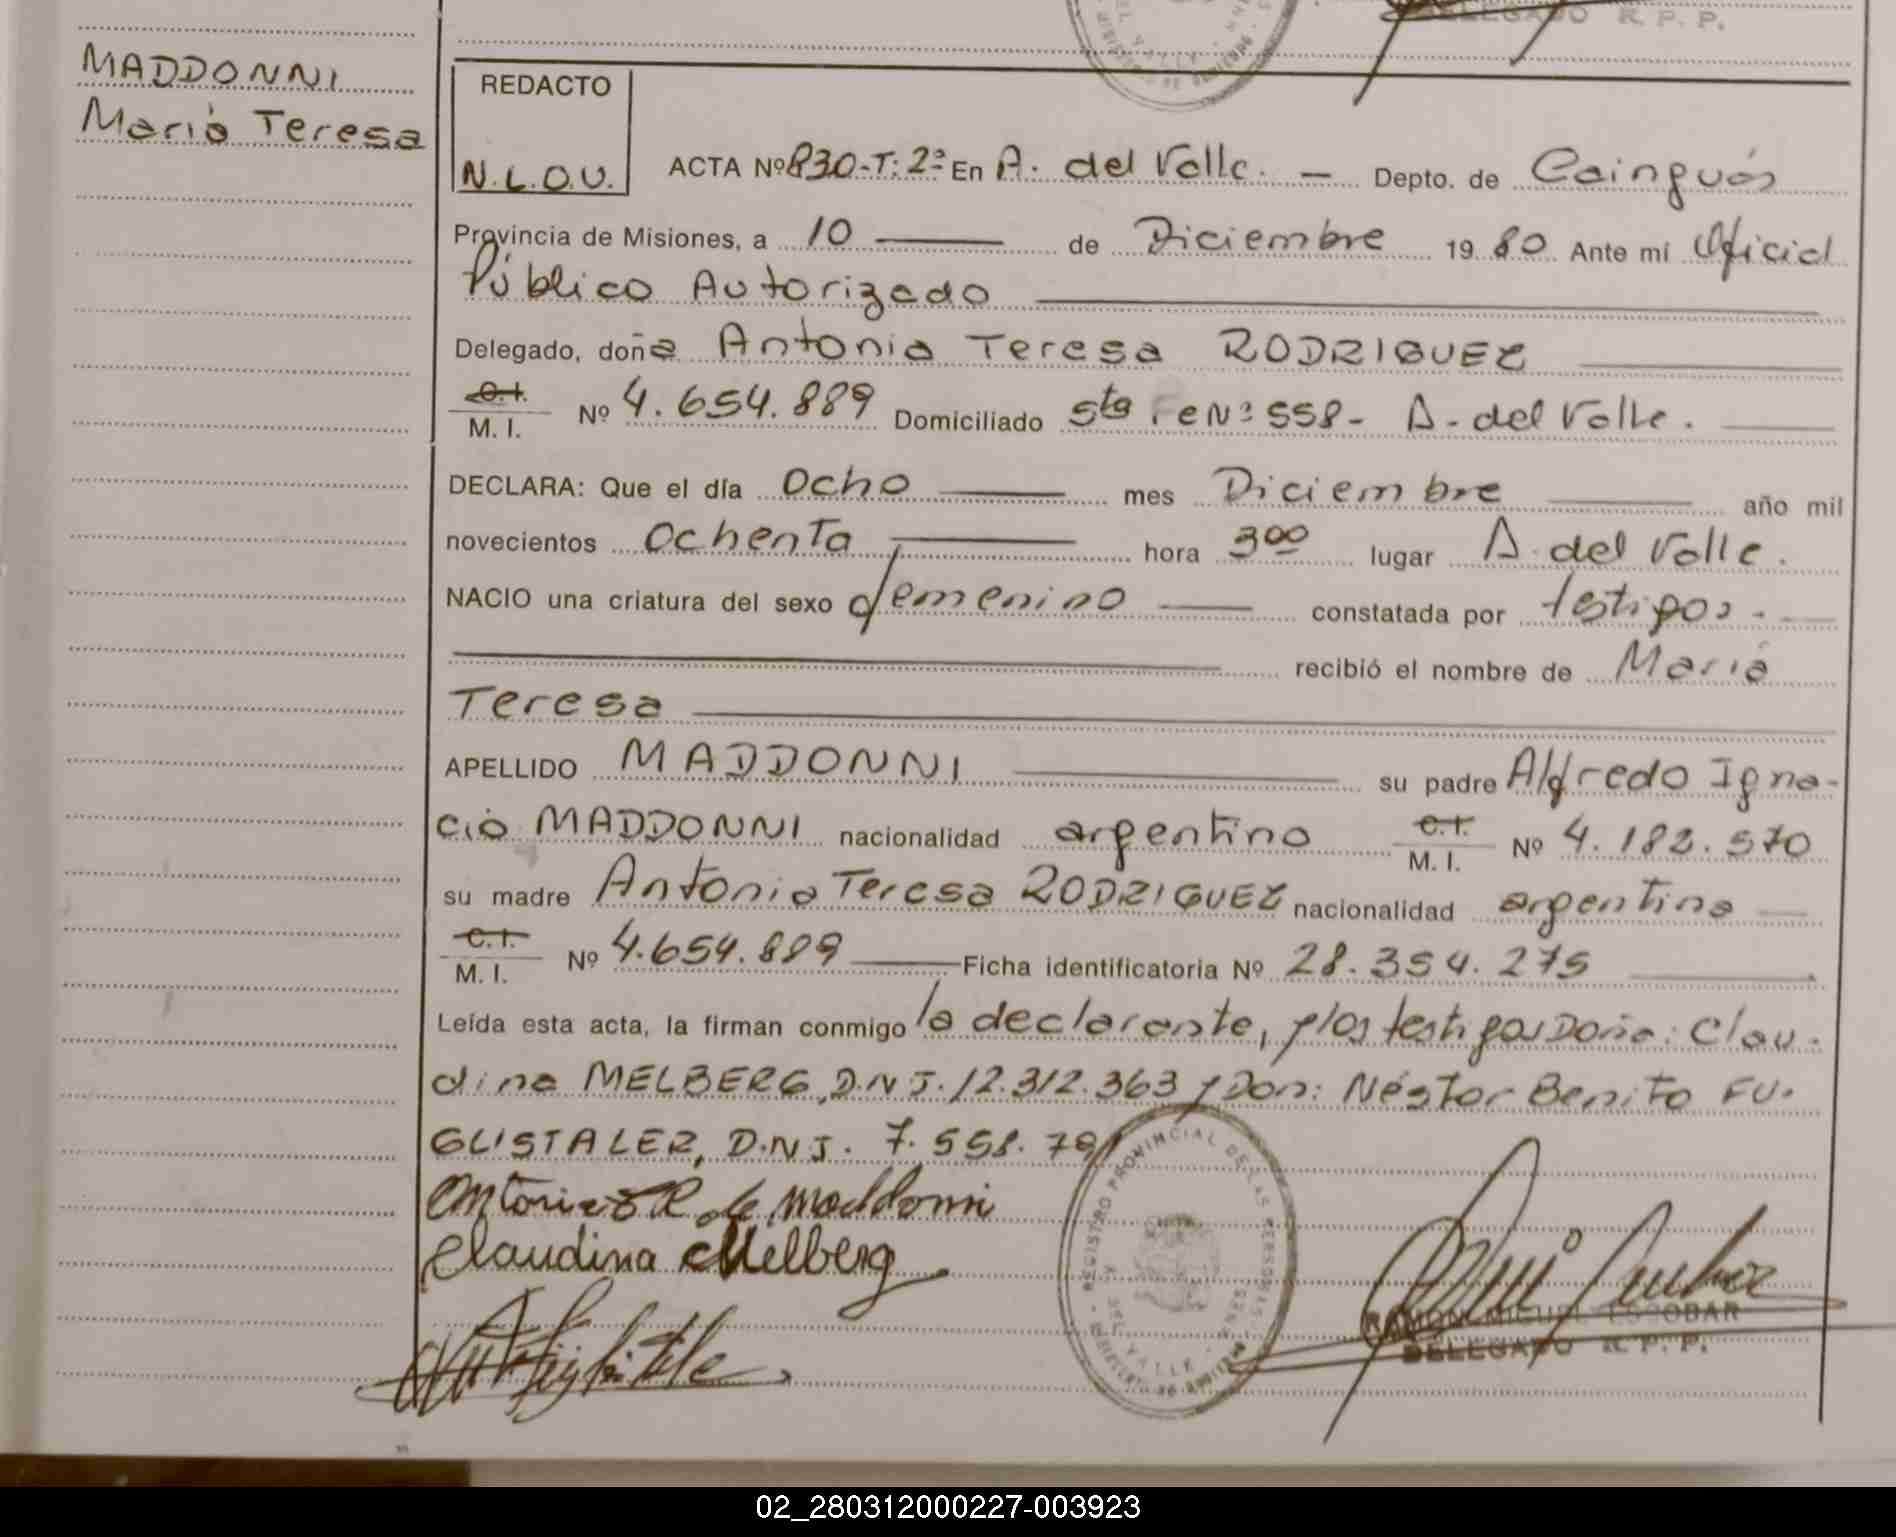 DELEGADO R. P. P.
MADDONNI
María Teresa
REDACTO
N.L.O.V.
ACTA Nº 830-T: 2º En A. del Valle. — Depto. de Cainguás
Provincia de Misiones, a 10 — de Diciembre 1980 Ante mí Oficial
Público Autorizado
Delegado, doña Antonia Teresa RODRIGUEZ
C.I.
M. I. Nº 4.654.889 Domiciliado Sta Fe Nº 558- A. del Valle.
DECLARA: Que el día Ocho — mes Diciembre — año mil
novecientos Ochenta — hora 3 00 lugar A. del Valle.
NACIO una criatura del sexo femenino — constatada por testigos. —
recibió el nombre de María
Teresa
APELLIDO MADDONNI — su padre Alfredo Igna-
cio MADDONNI nacionalidad argentino C.I. M. I. Nº 4.182.570
su madre Antonia Teresa RODRIGUEZ nacionalidad argentina —
C.I.
M. I. Nº 4.654.889 — Ficha identificatoria Nº 28.354.275
Leída esta acta, la firman conmigo la declarante, y los testigos Doña: Clau-
dina MELBERG, D.N.I. 12.312.363 y Don: Néstor Benito FU-
GLISTALER, D.N.I. 7.558.791
Antonia T R de Maddonni
Claudina Melberg
REGISTRO PROVINCIAL DE LAS PERSONAS
RAMON MIGUEL ESCOBAR
DELEGADO R. P. P.
02_280312000227-003923